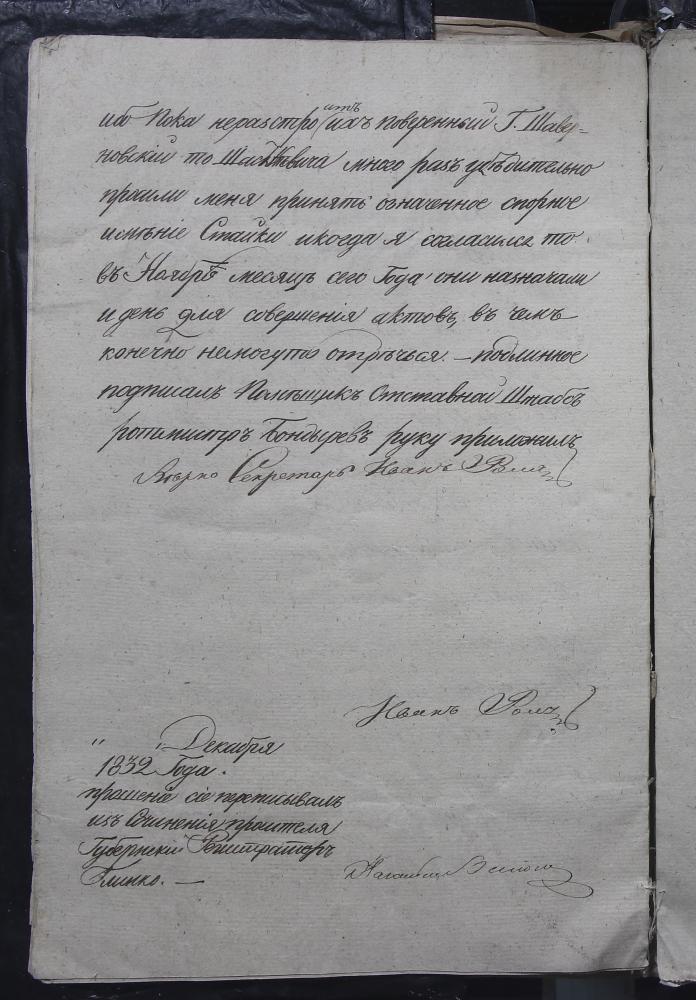 ибо пока неразстроитъ ихъ поверенный Г. Шавер-
новскій то Шашкевича много разъ убѣдительно
просили меня принять означенное спорное
имѣніе Стайки и когда я согласился то
въ Ноябрѣ месяцѣ сего Года они назначали
и день для совершенія актовъ, въ чемъ
конечно немогутъ отрѣчься. — подлинное
подписалъ Помѣщикъ Отставной Штабсъ
ротмистръ Бондыревъ руку приложилъ
Вѣрно Секретарь Иванъ
Иванъ
" " Декабря
1832 Года.
прошеніе сіе переписывалъ
изъ Сочиненія просителя
Губернскій Регистраторъ
Глинко. —